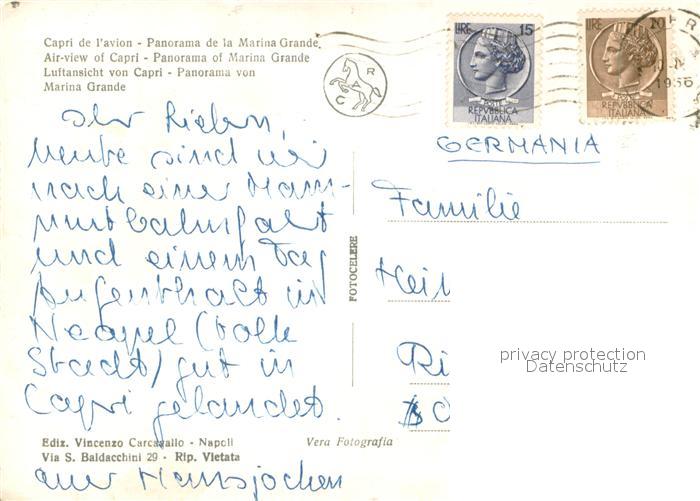 Capri de l'avion - Panorama de la Marina Grande.
Air-view of Capri - Panorama of Marina Grande
Luftansicht von Capri - Panorama von
Marina Grande
RAC
LIRE 15
POSTE
REPVBBLICA
ITALIANA
LIRE 20
POSTE
REPVBBLICA
ITALIANA
1956
GERMANIA
Ihr Lieben,
heute sind wir
nach einer Mam-
mutbahnfahrt
und einem Tag
Aufenthalt in
Neapel (tolle
Stadt) gut in
Capri gelandet.
Euer Hansjochen
Familie
Hei
Ri
FOTOCELERE
privacy protection
Datenschutz
Ediz. Vincenzo Carcavallo - Napoli
Via S. Baldacchini 29 - Rip. Vietata
Vera Fotografia